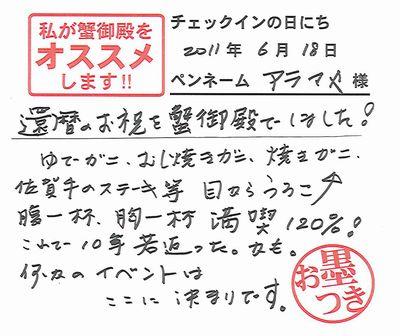 私が蟹御殿を
オススメ
します!!
チェックインの日にち
2011年 6月 18日
ペンネーム アラマメ 様
還暦のお祝を蟹御殿でしました!
ゆでがニ、むし焼きがニ、焼きがニ、
佐賀牛のステーキ等 目からうろこ
腹一杯、胸一杯 満喫 120%!
これで10年若返った。かも。
何かのイベントは
ここに決まりです。
お墨つき